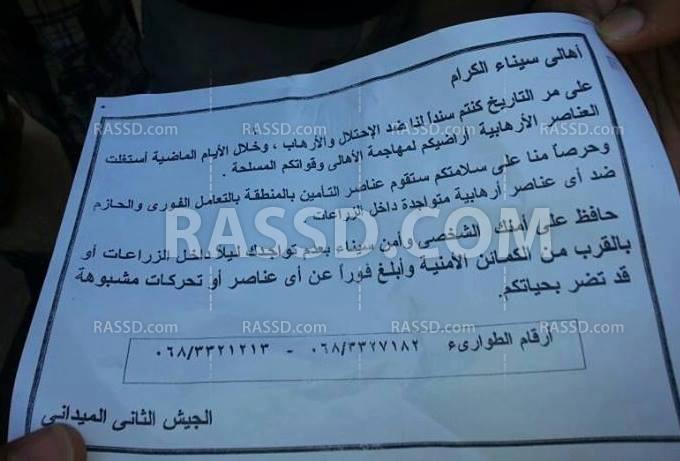 أهالى سيناء الكرام
على مر التاريخ كنتم سنداً لنا ضد الإحتلال والأرهاب ، وخلال الأيام الماضية أستغلت
العناصر الأرهابية أراضيكم لمهاجمة الأهالى وقواتكم المسلحة .
وحرصاً منا على سلامتكم ستقوم عناصر التأمين بالمنطقة بالتعامل الفورى والحازم
ضد أى عناصر أرهابية متواجدة داخل الزراعات .
حافظ على أمنك الشخصى وأمن سيناء بعدم تواجدك ليلاً داخل الزراعات أو
بالقرب من الكمائن الأمنية وأبلغ فوراً عن أى عناصر أو تحركات مشبوهة
قد تضر بحياتكم.
أرقام الطوارىء ٠٦٨/٣٣٢٧١٨٢ - ٠٦٨/٣٣٢١٢١٣
الجيش الثانى الميدانى
RASSD.com RASSD.com RASSD.com RASSD.com
RASSD.COM
RASSD.com RASSD.com RASSD.com RASSD.com